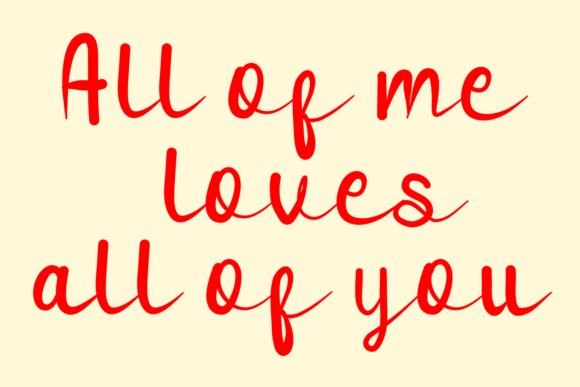 All of me
loves
all of you